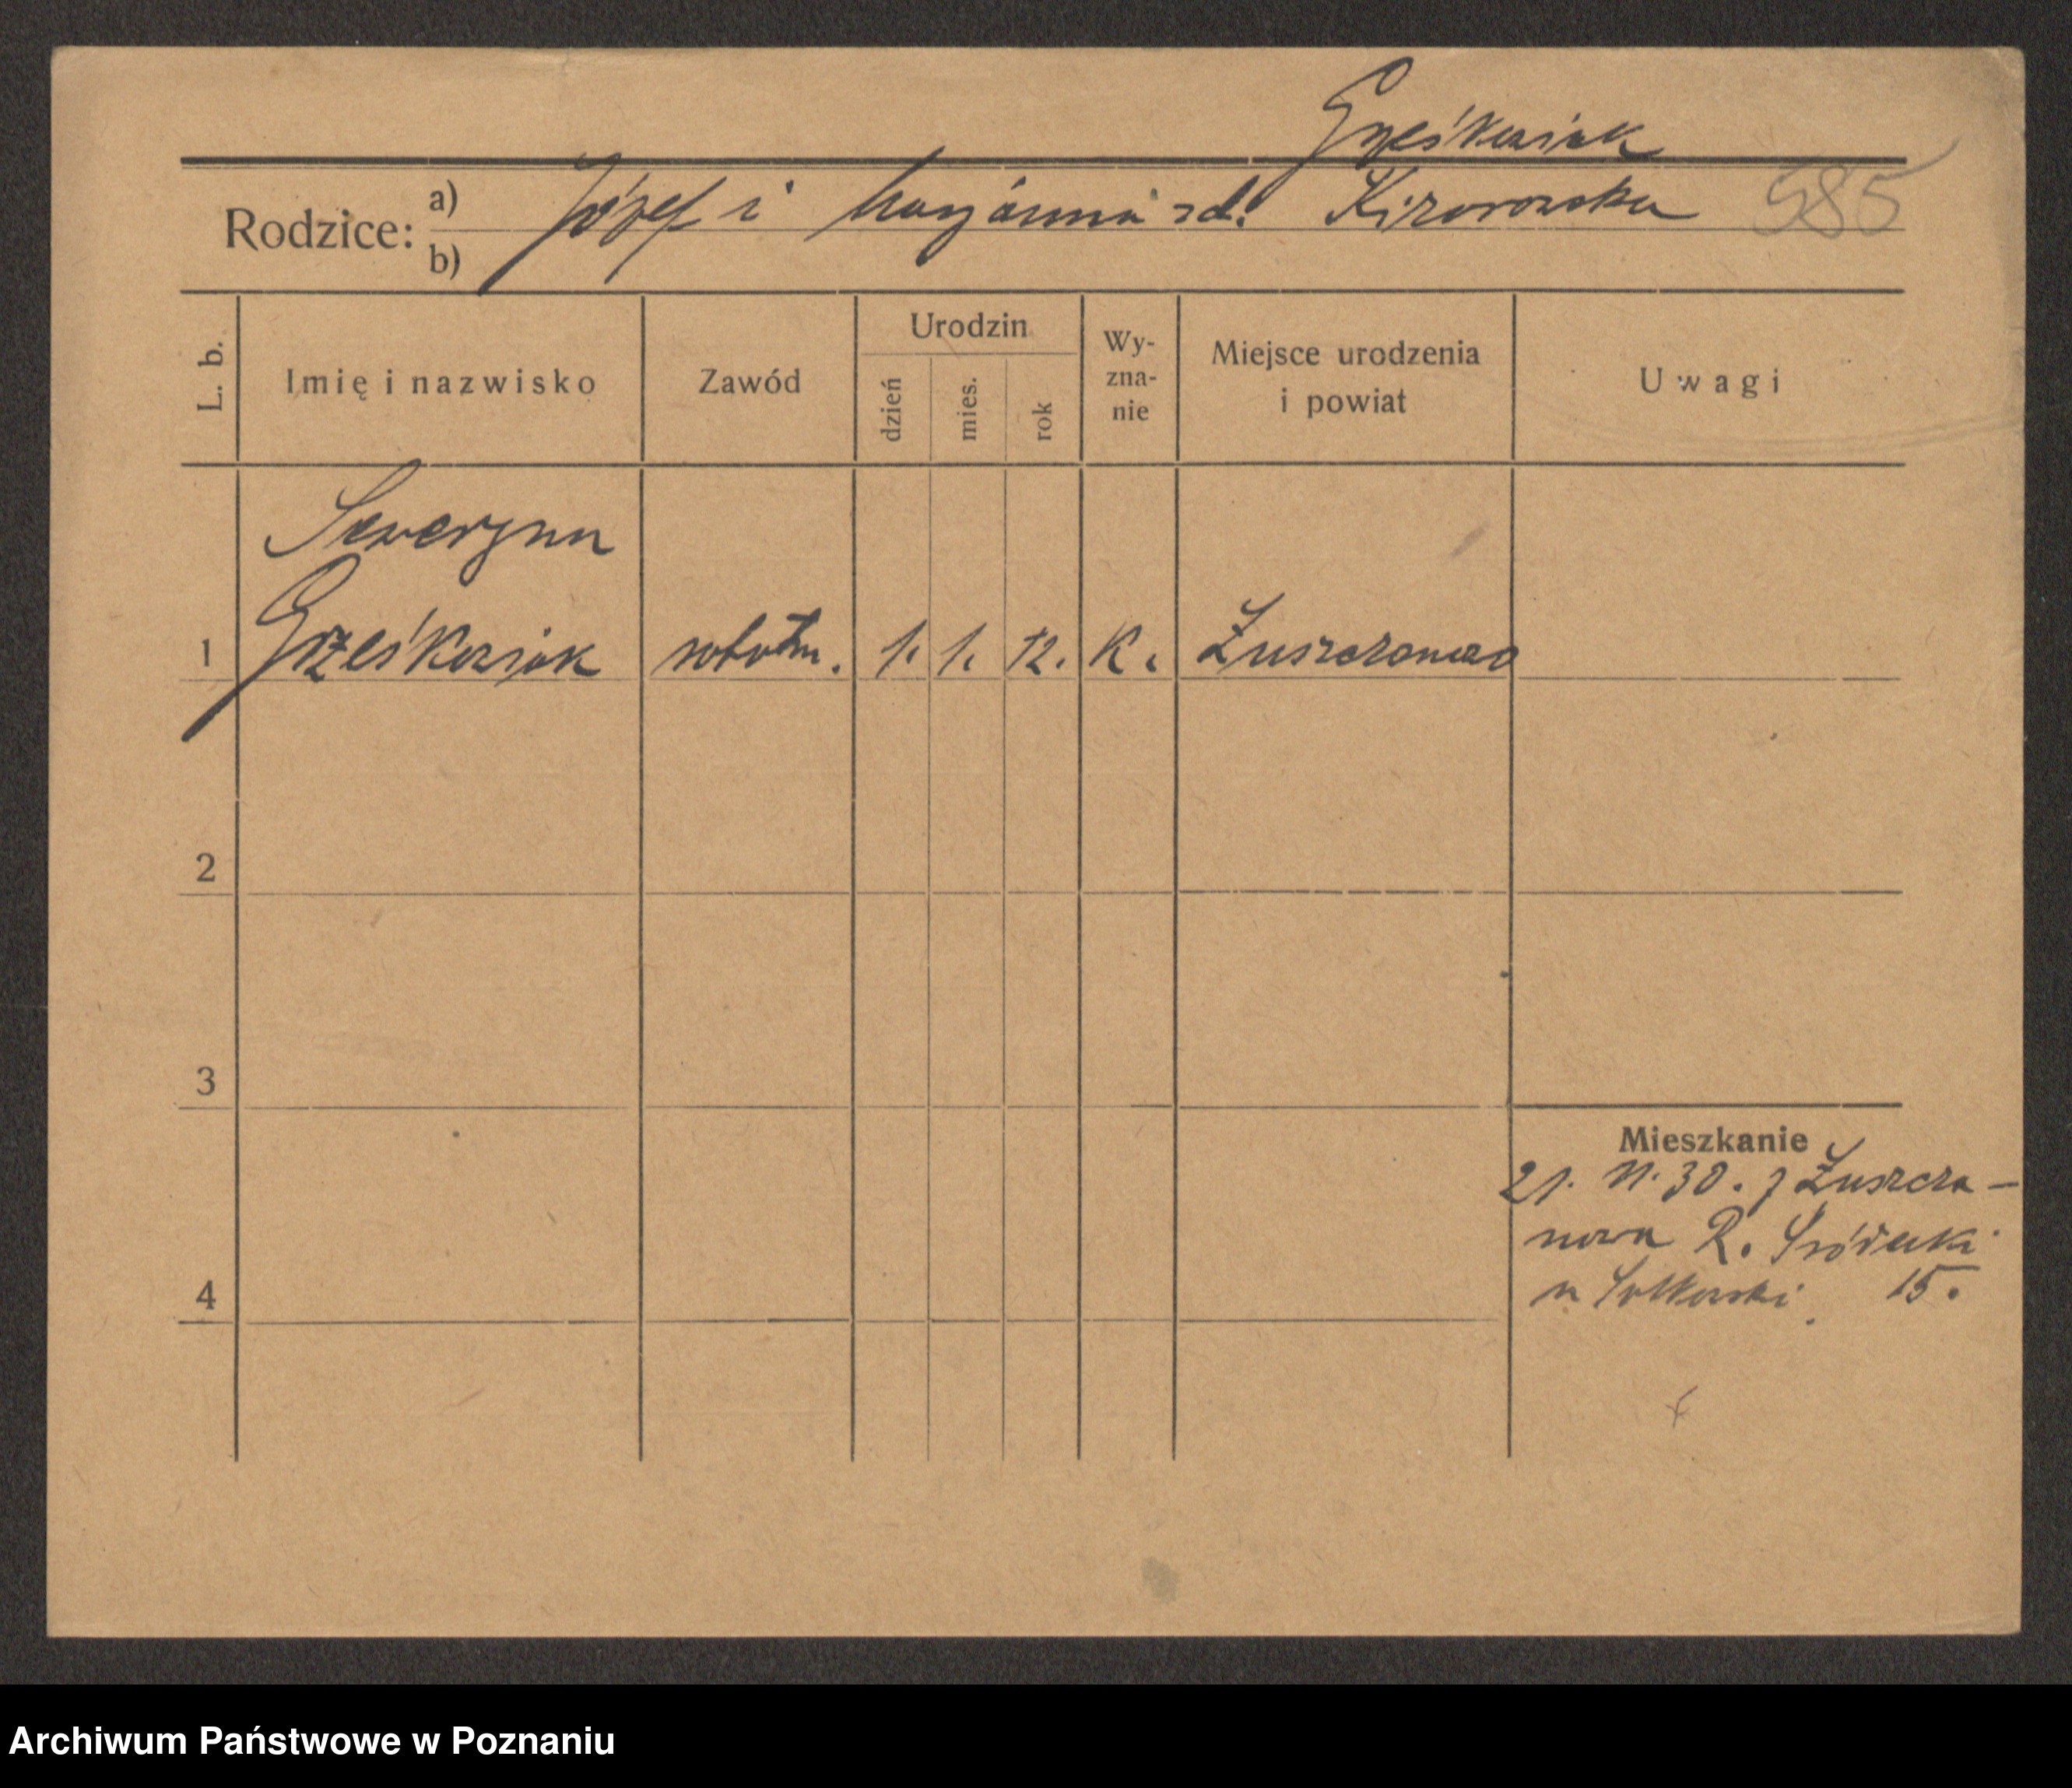 Grześkowiak
Rodzice: a) Józef i Maryanna zd. 585
b)
L. b. Imię i nazwisko Zawód Urodzin dzień mies. rok Wy-zna-nie Miejsce urodzenia i powiat Uwagi
Seweryna
1 Grześkowiak robotn. 1. 1. 12. K.
2
3
Mieszkanie
21. 11. 30. z
R. Śródecki
4 15.
Archiwum Państwowe w Poznaniu